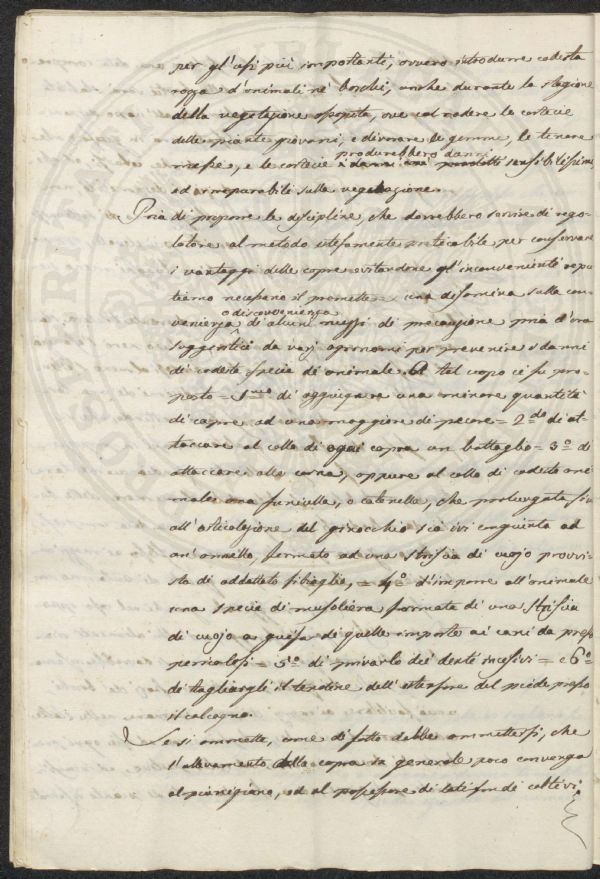 per gl'usi più importanti, ovvero introdurre codesta
razza d'animali ne' boschi, anche durante la stagione
della vegetazione sopita, ove col rodere le corteccie
delle piante giovani, e divorare le gemme, le tenere
messe, e le corteccie produrrebbero danni sensibilissimi,
ed irreparabili sulla vegetazione.
Pria di proporre le discipline, che dovrebbero servire di rego-
latore al metodo utilmente praticabile per conservare
i vantaggi delle capre evitandone gl'inconvenienti repu-
tiamo necessario il premettere una disamina sulla con-
venienza o disconvenienza di alcuni mezzi di precauzione pria d'ora
suggeriti da varj agronomi per prevenire i danni
di codeste specie di animale. A tal uopo ci fu pro-
posto = 1.mo di aggiugnere una minore quantità
di capre ad una maggiore di pecore = 2.do di at-
taccare al collo di ogni capra un battaglio = 3.o di
attaccare alle corna, oppure al collo di codesto ani-
male una funicella, o catenella, che prolungata sin
all'articolazione del ginocchio sia ivi congiunta ad
un'annello, fermato ad una striscia di cuojo provvi-
sta di addattato fibbaglio, = 4.o d'imporre all'animale
una specie di musoliera formata di una striscia
di cuojo a guisa di quelle imposte ai cani da presa
pericolosi = 5.o di privarlo dei denti incisivi = e 6.o
di tagliargli il tendine dell'estensore del piede presso
il calcagno.
Se si ammette, come di fatto debbe ammettersi, che
l'allevamento delle capre in generale poco convenga
al pianigiano, ed al possessore di latifondi coltivi